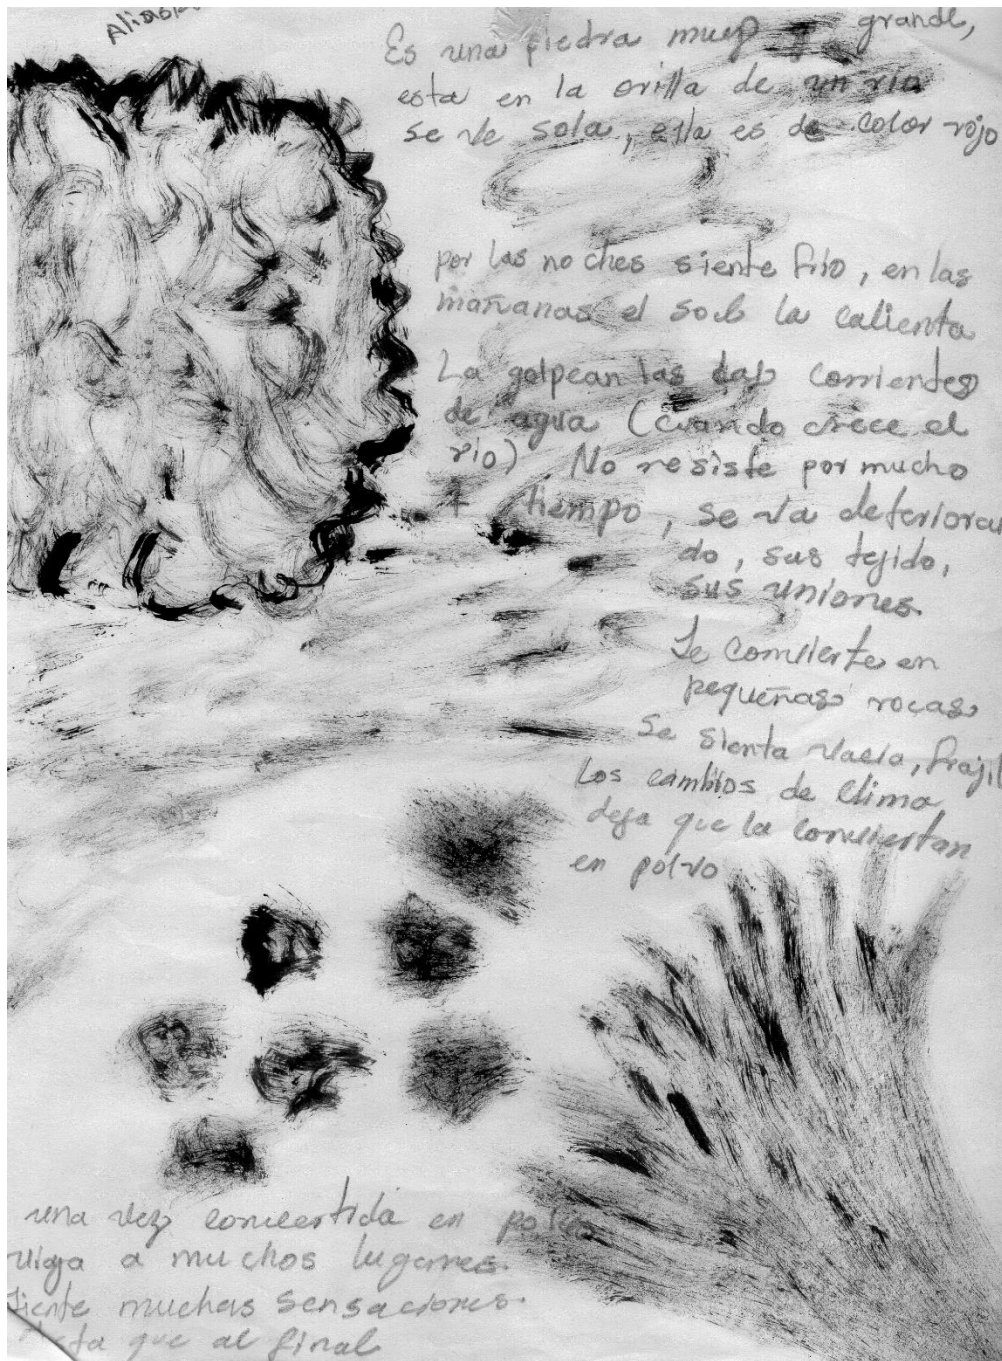 Es una piedra muy grande,
esta en la orilla de un rio
se ve sola, ella es de color rojo
por las noches siente frio, en las
mañanas el sol la calienta
La golpean las corrientes
de agua (cuando crece el
rio). No resiste por mucho
tiempo, se va deteriora
do, sus tejido,
sus uniones.
Se convierte en
pequeñas rocas
Se sienta vacia, frajil
Los cambios de clima
deja que la conviertan
en polvo
una vez convertida en polvo
viaja a muchos lugares.
siente muchas sensaciones.
que al final